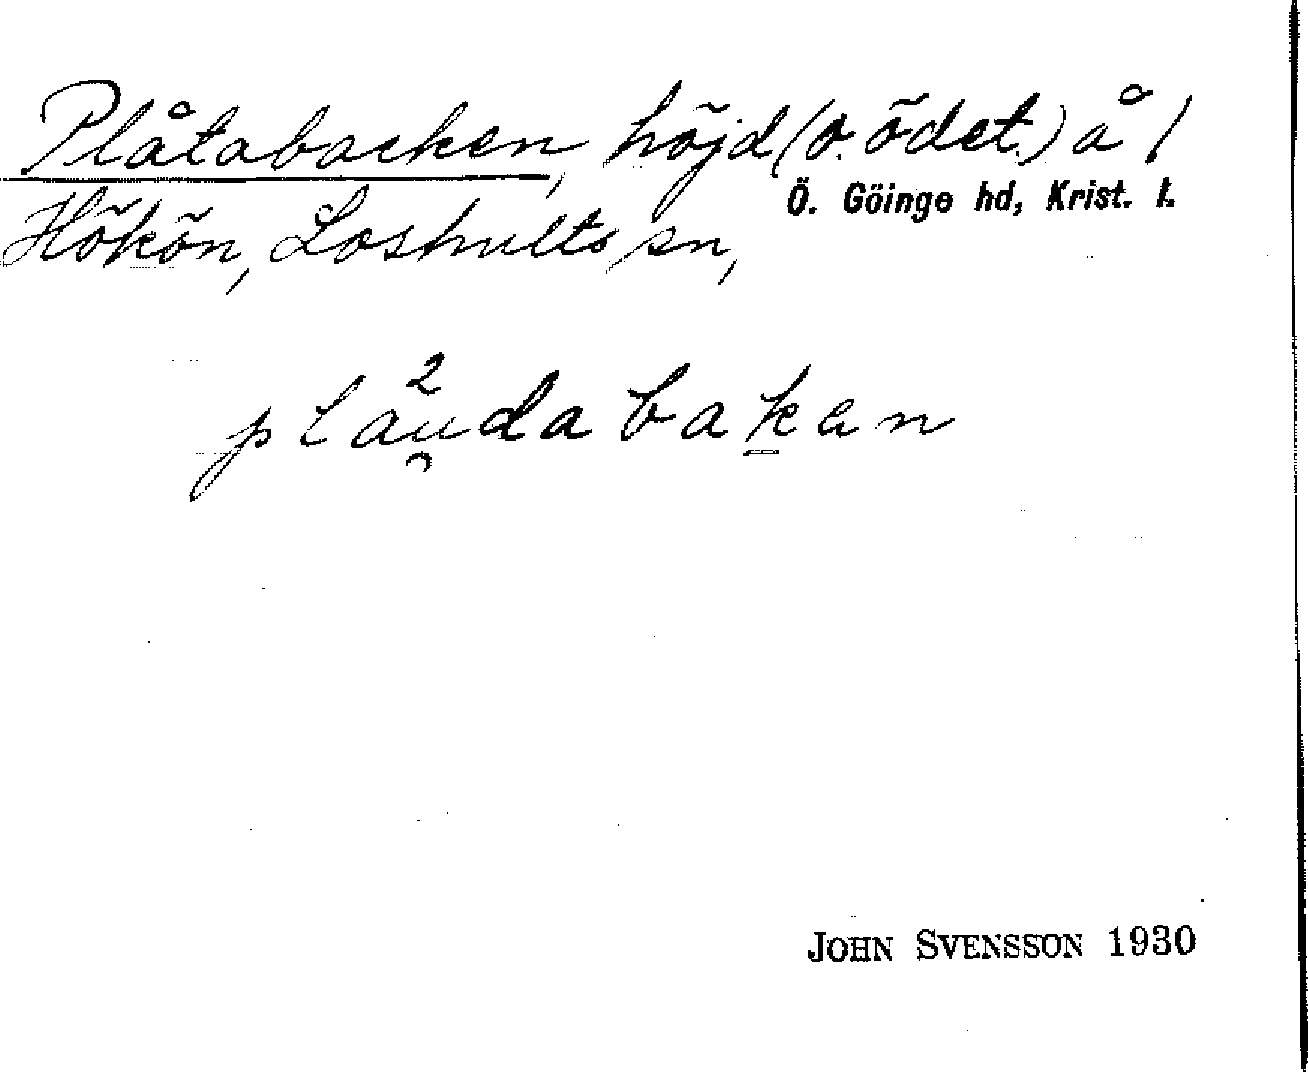 Plåtabacken, höjd (o. ödet.) å /
Ö. Göinge hd, Krist. l.
Hökön, Loshults sn,
plau̯²dabaken
JOHN SVENSSON 1930